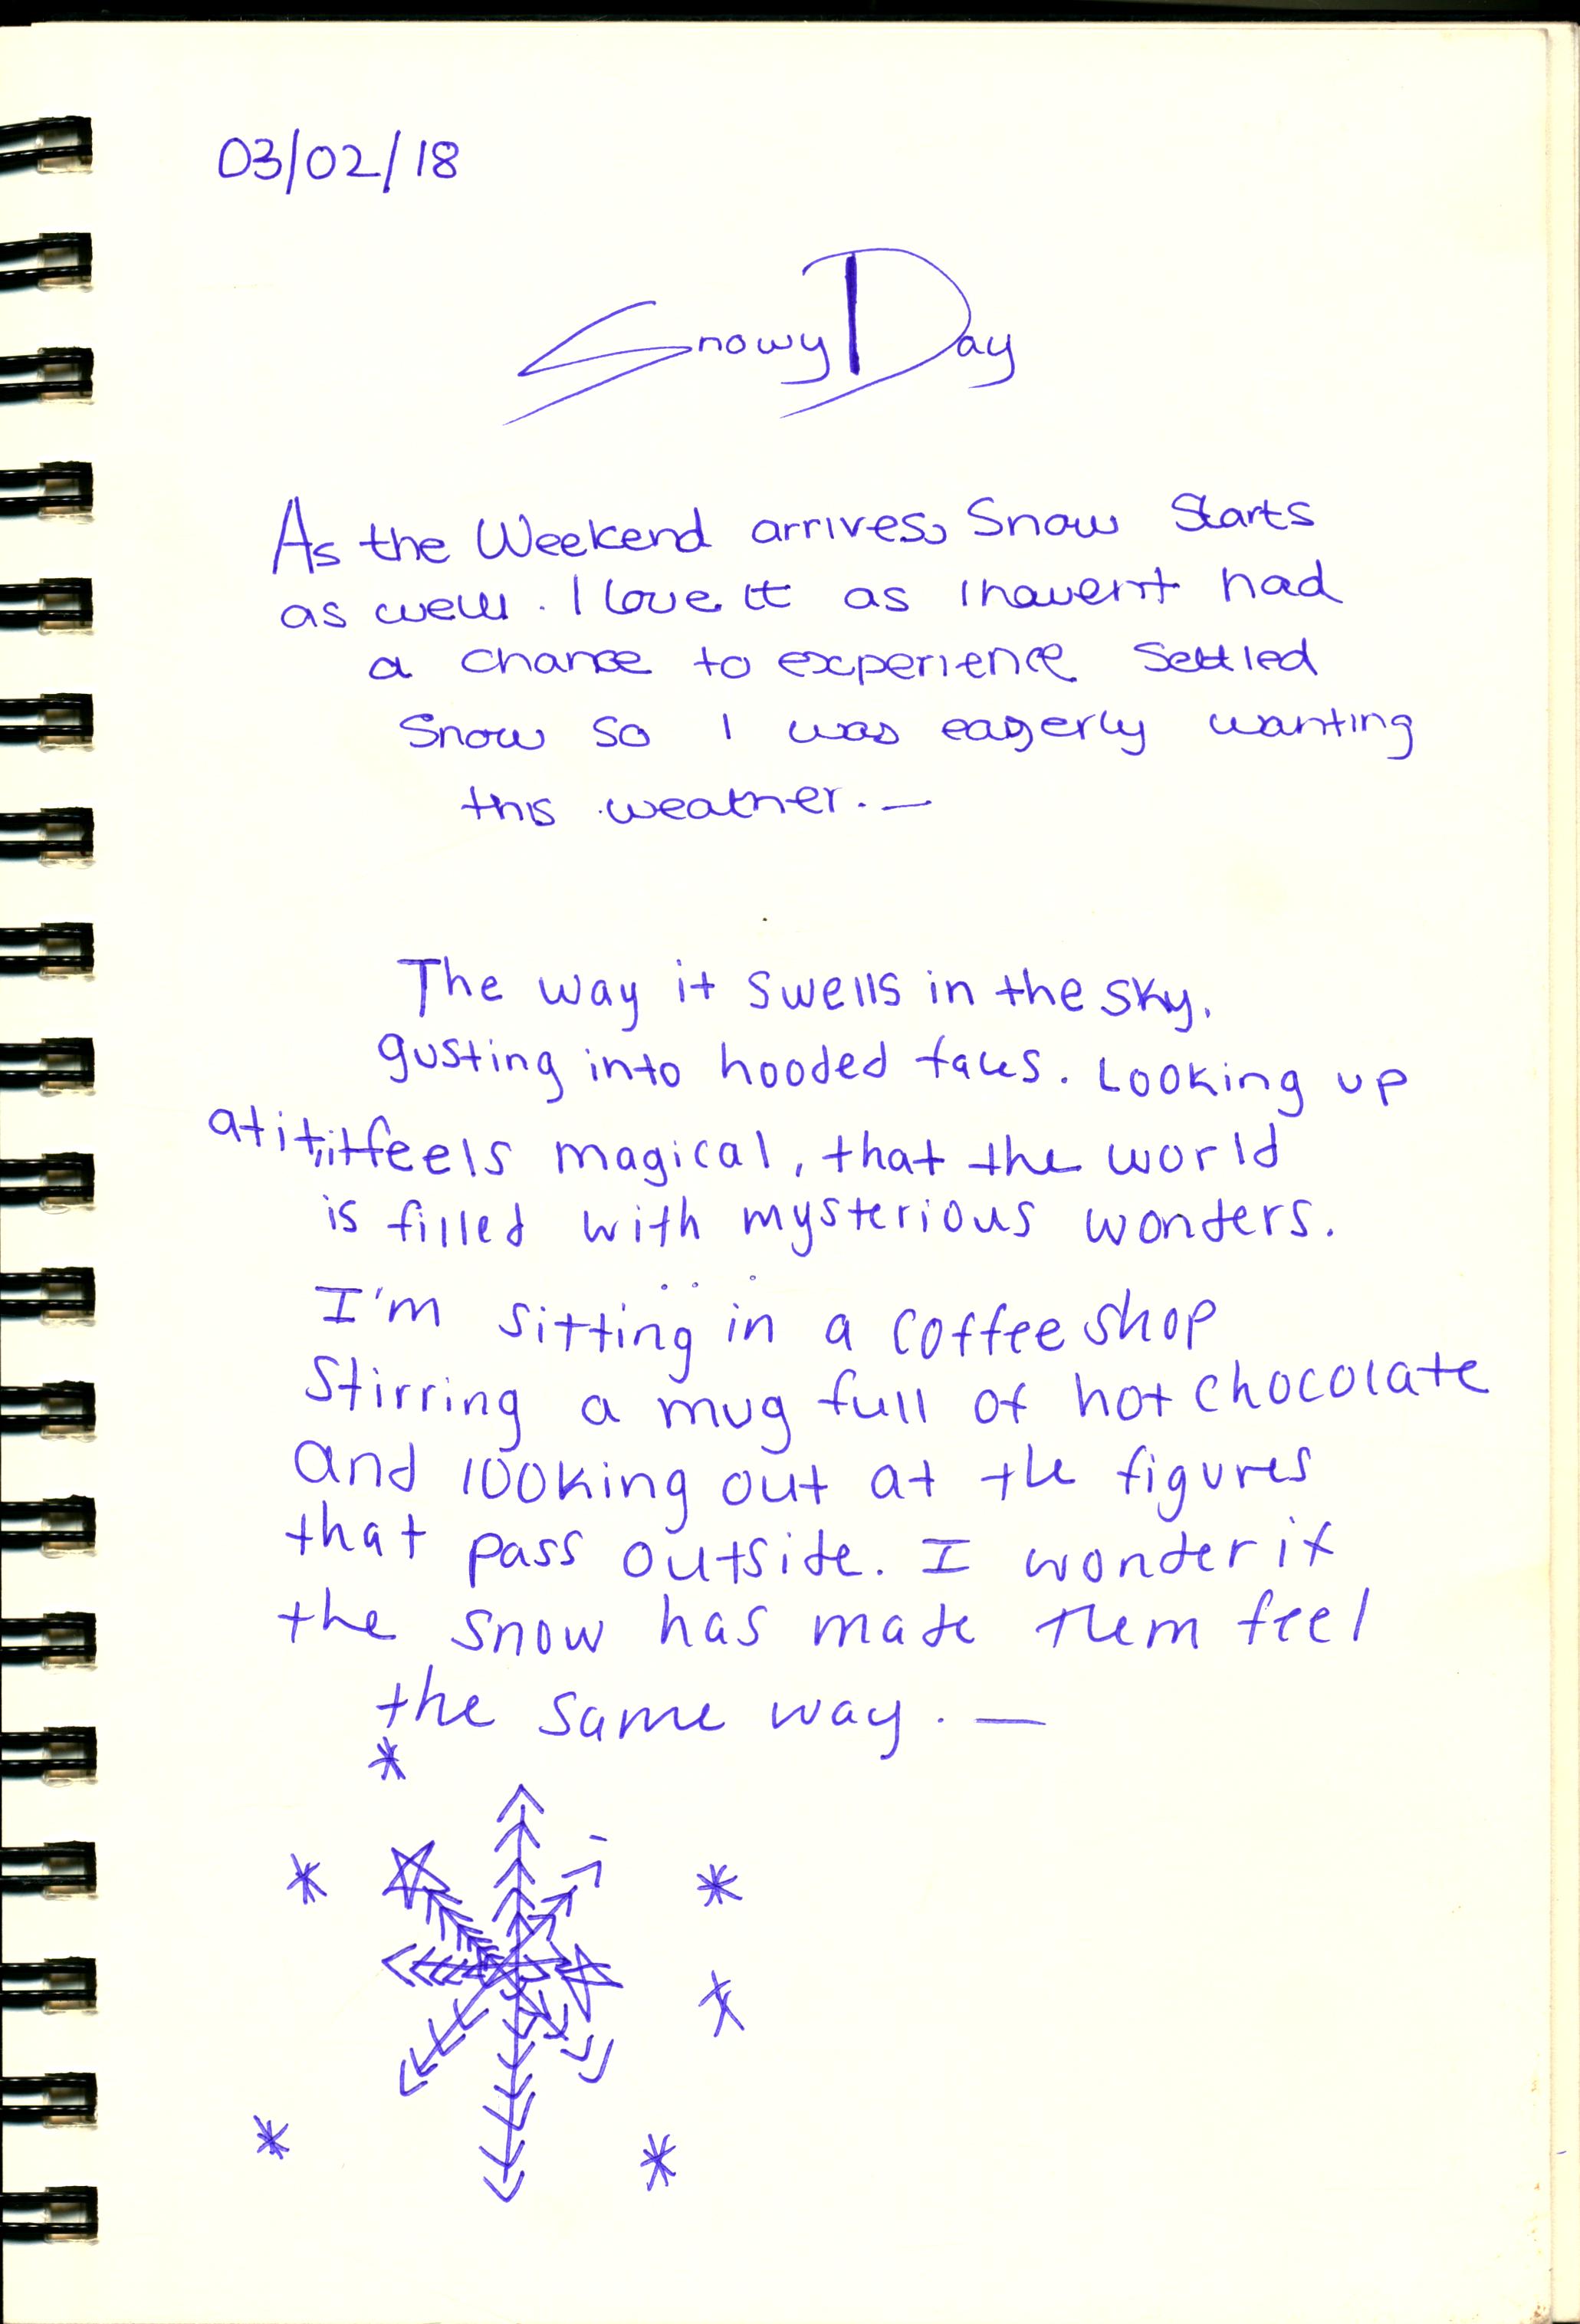 03/02/18
Snowy Day
As the Weekend arrives, Snow Starts
as well. I love it as I haven't had
a chance to experience settled
Snow so I was eagerly wanting
this weather. —
The way it swells in the sky,
gusting into hooded faces. Looking up
at it, it feels magical, that the world
is filled with mysterious wonders.
I'm sitting in a coffee shop
Stirring a mug full of hot chocolate
and looking out at the figures
that pass outside. I wonder if
the snow has made them feel
the same way. —